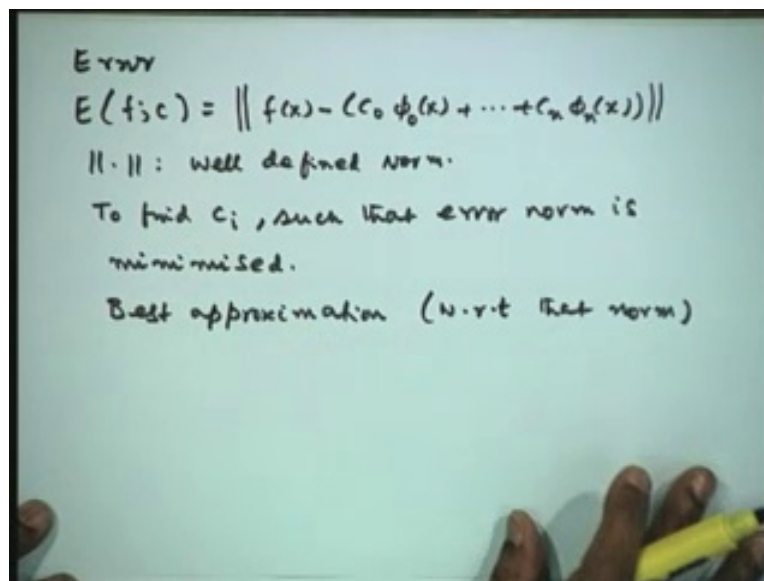 Error
E(f;c) = || f(x) - (c₀ ϕ₀(x) + ... + cₙ ϕₙ(x)) ||
||·|| : well defined Norm.
To find cᵢ, such that error norm is
minimised.
Best approximation (w.r.t that norm)